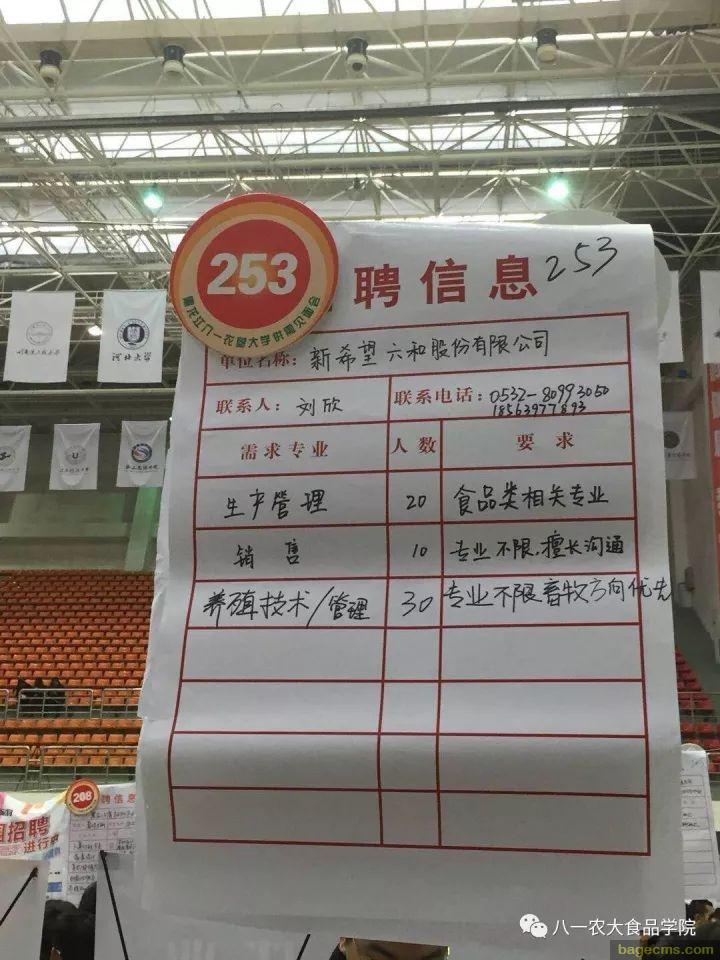 253
黑龙江八一农垦大学供需见面会
聘信息 253
单位名称: 新希望六和股份有限公司
联系人: 刘欣
联系电话: 0532-80993050
18563977893
需求专业 人数 要求
生产管理 20 食品类相关专业
销售 10 专业不限,擅长沟通
养殖技术/管理 30 专业不限畜牧方向优先
河北大学
208
聘信息
招聘
进行
八一农大食品学院
bagecms.com